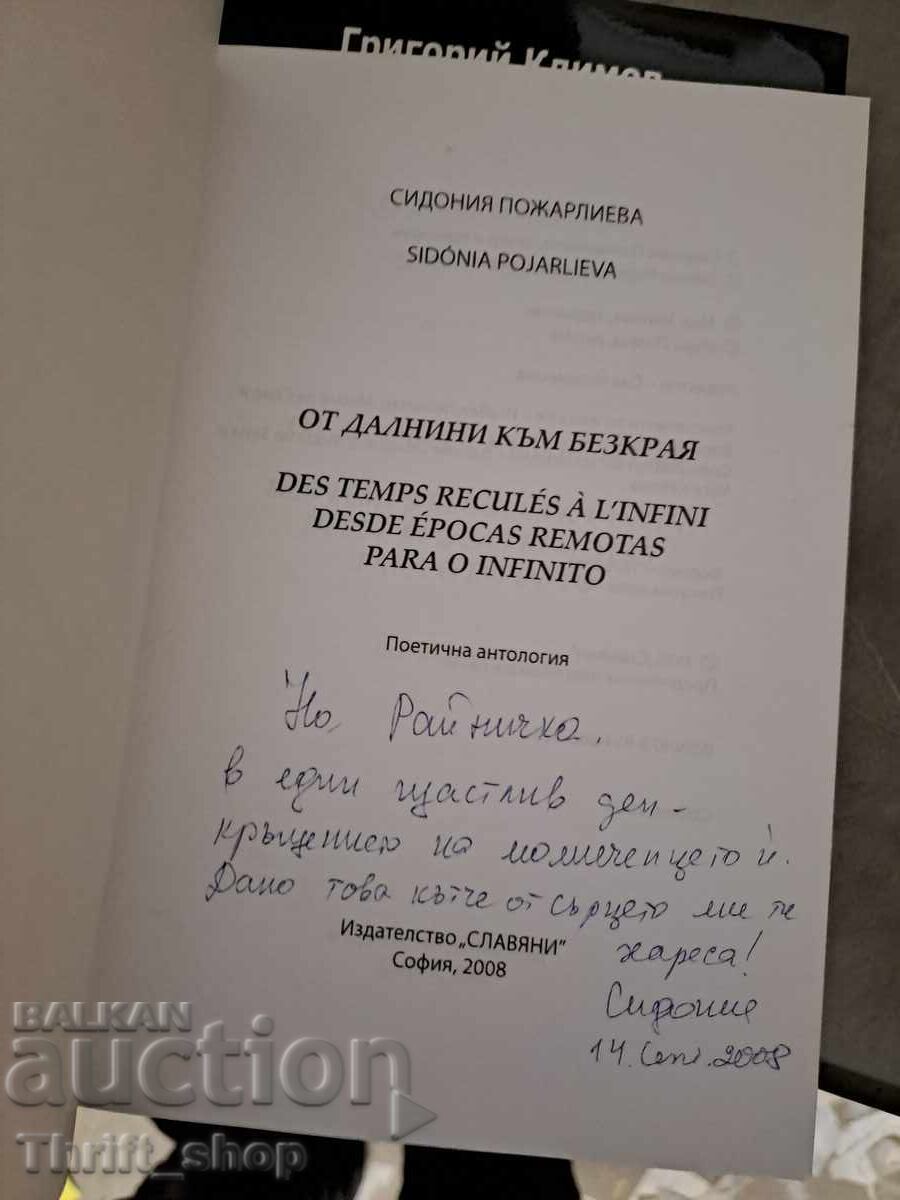 Григорий Климов
СИДОНИЯ ПОЖАРЛИЕВА
SIDÓNIA POJARLIEVA
ОТ ДАЛНИНИ КЪМ БЕЗКРАЯ
DES TEMPS RECULÉS À L'INFINI
DESDE ÉPOCAS REMOTAS
PARA O INFINITO
Поетична антология
На Райничка,
в един щастлив ден –
кръщението на момиченцето ѝ.
Дано това кътче от сърцето ми те
хареса!
Издателство „СЛАВЯНИ"
София, 2008
Сидония
14. Септ. 2008
BALKAN
auction
Thrift_shop